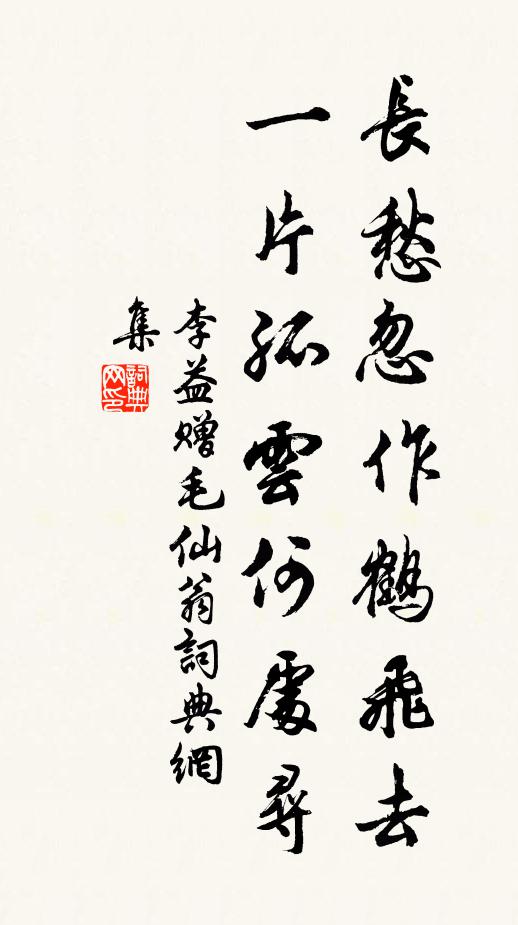 長愁忽作鶴飛去
一片孤雲何處尋
李益赠毛仙翁詞典網
集
詞典
网印